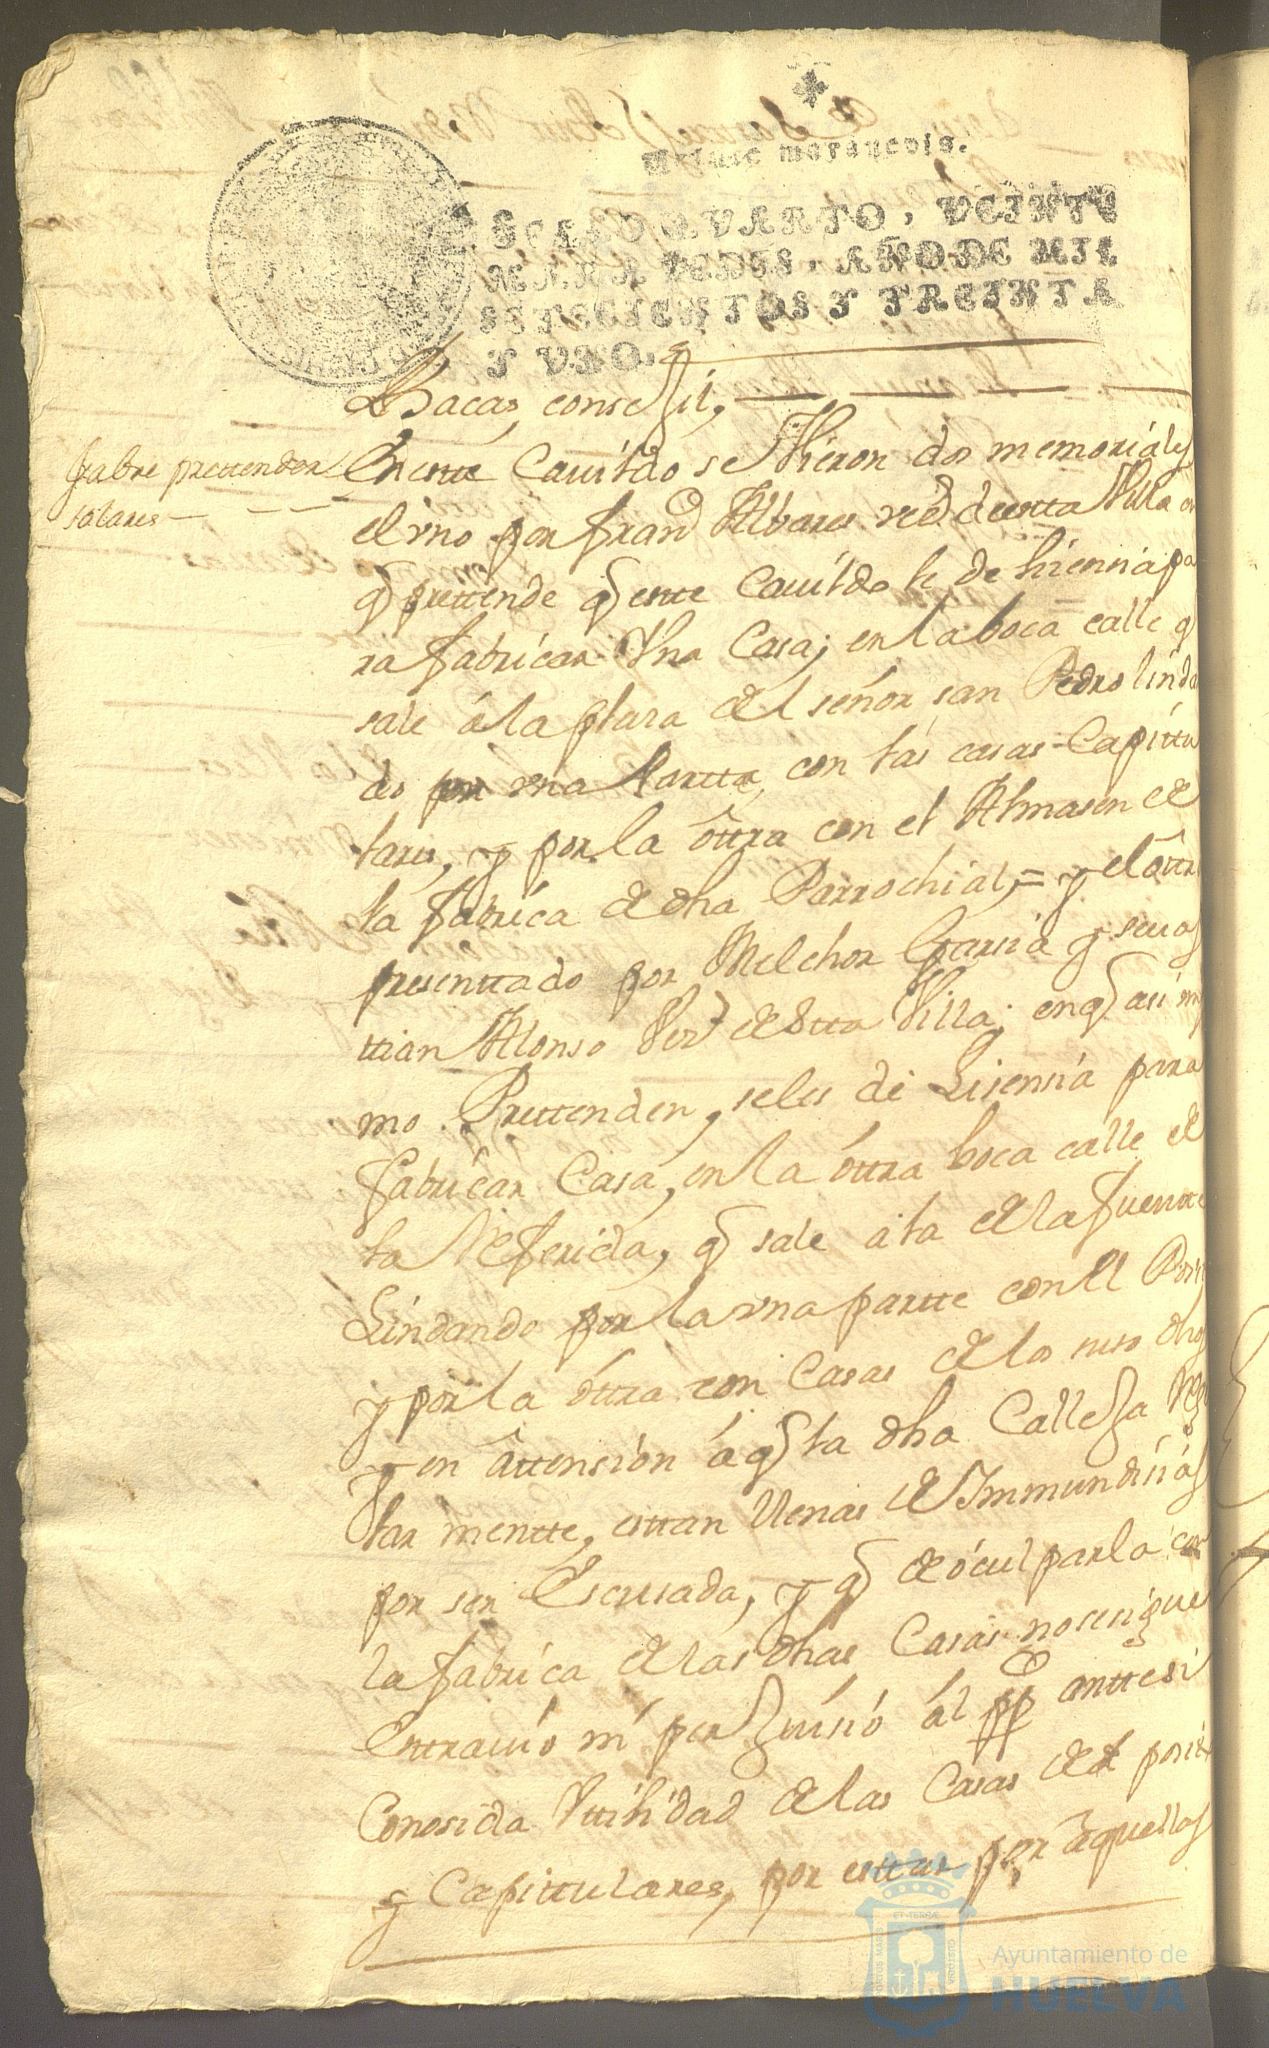 Veinte maravedis.
SELLO QVARTO, VEINTE
MARAVEDIS, AÑO DE MIL
SETECIENTOS Y TREINTA
Y VNO.
Bacas, conse Jil,
Sabre prettender
solares
En este Cavildo se Vieron dos memoriales
el vno por Fran.co Albares vez.o de esta Villa en
q prettende q este Cavildo le de lisensia pa
ra fabricar Vna Casa; en la boca calle q
sale á la plasa del señor san Pedro linda
do por vna partte, con las casas Capittu
lares, y por la ôttra con el Almasen de
la fabrica de dha Parrochial, = y el ôttro
presenttado por Melchor Garsia y sevas
ttian Alonso Vez.s de estta Villa; en q asi mis
mo Prettenden, se les de Lisensia para
fabricar Casa, en la ôttra boca calle de
la Referida, q sale a la de la fuentte
Lindando por la vna partte con el Posito
y por la ôttra con Casas de los suso dhos
y en âttension á q la dha Calleja Regu
lar mentte, esttan llenas de Immundisias
por ser Escusada, y q de ócuparla con
la fabrica de las dhas Casas no se sigue
Extravio ni perJuisio ál pp.co anttes si
Conosida Vttilidad de las Casas del posito
y Capittulares, por esttar por aquellas
Ayuntamiento de
HUELVA